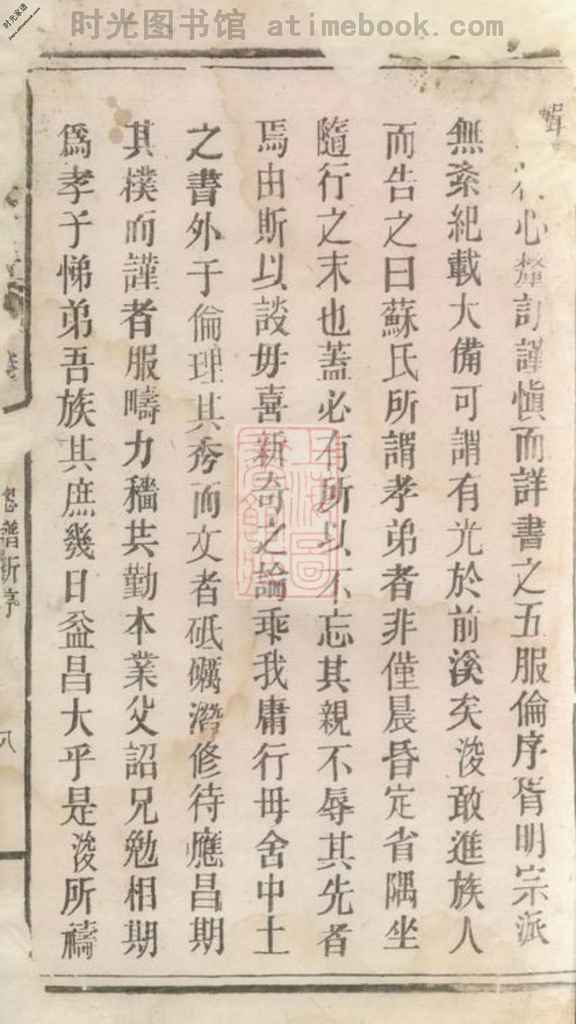 时光图书馆 atimebook.com
时光家谱
輯
心釐訂謹慎而詳書之五服倫序胥明宗派
無紊紀載大備可謂有光於前溪矣浚敢進族人
而告之曰蘇氏所謂孝弟者非僅晨昏定省隅坐
隨行之末也蓋必有所以不忘其親不辱其先者
焉由斯以談毋喜新奇之論乖我庸行毋舍中土
之書外于倫理其秀而文者砥礪潛修待應昌期
其樸而謹者服疇力穡共勤本業父詔兄勉相期
爲孝子悌弟吾族其庶幾日益昌大乎是浚所禱
譜新序
八